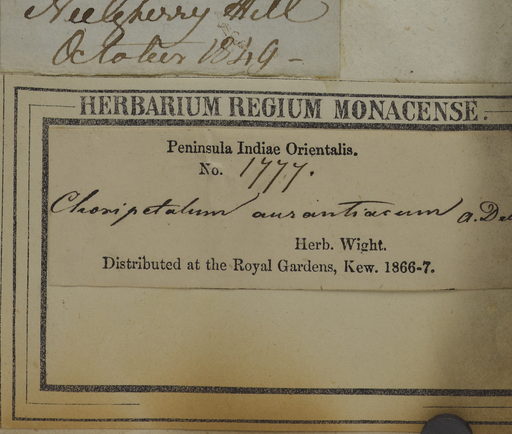 Neelgherry Hill
October 1849 -
HERBARIUM REGIUM MONACENSE.
Peninsula Indiae Orientalis.
No. 1777.
Choripetalum aurantiacum A. D
Herb. Wight.
Distributed at the Royal Gardens, Kew. 1866-7.